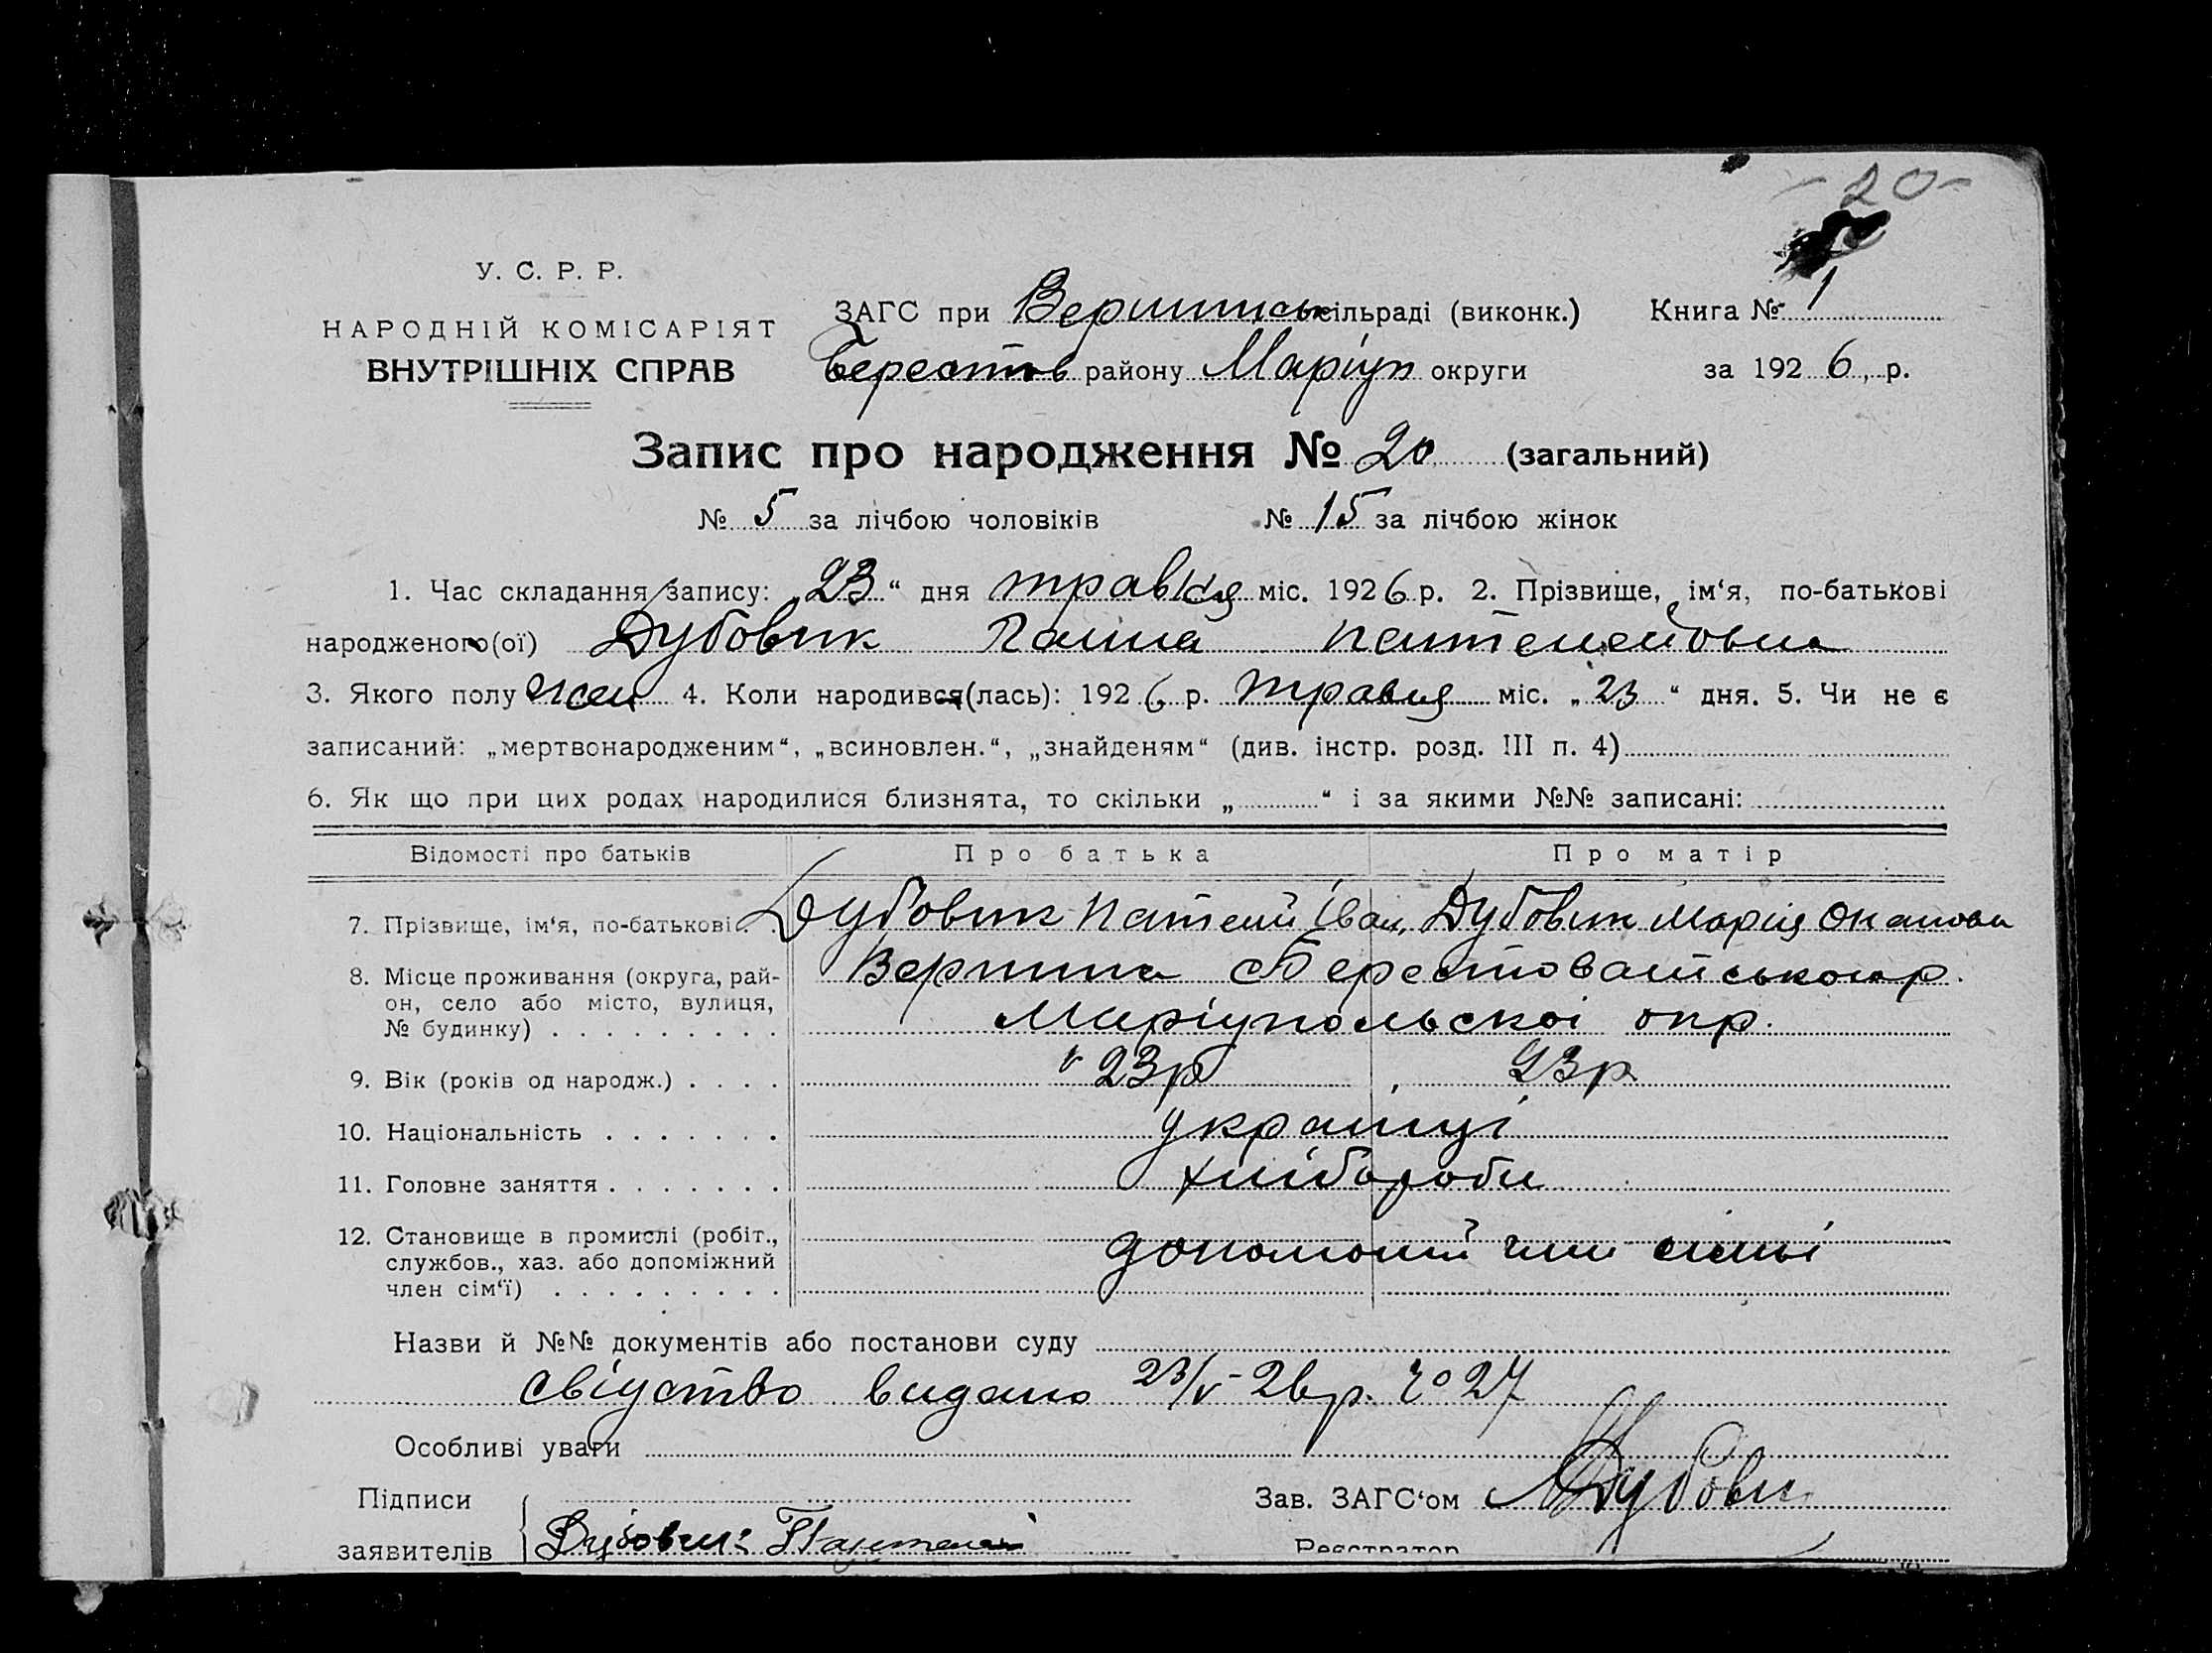 - 20 -
У. С. Р. Р.
НАРОДНІЙ КОМІСАРІЯТ
ВНУТРІШНІХ СПРАВ
ЗАГС при Вершинськ сільраді (виконк.) Книга № 1
Берестов району Маріуп округи за 1926 р.
Запис про народження № 20 (загальний)
№ 5 за лічбою чоловіків № 15 за лічбою жінок
1. Час складання запису: „23“ дня травня міс. 1926 р. 2. Прізвище, ім‘я, по-батькові
народженого(ої) Дубовик
3. Якого полу жен 4. Коли народився(лась): 1926 р. травня міс. „23“ дня. 5. Чи не є
записаний: „мертвонародженим“, „всиновлен.“, „знайденям“ (див. інстр. розд. III п. 4)
6. Як що при цих родах народилися близнята, то скільки „ “ і за якими №№ записані:
Відомості про батьків Про батька Про матір
7. Прізвище, ім‘я, по-батькові Дубовик Пателий Іван, Дубовик Марія
8. Місце проживання (округа, рай-
он, село або місто, вулиця,
№ будинку)
Вершина
Маріупольскоі окр.
9. Вік (років од народж.) 23р 23р
10. Національність украинці
11. Головне заняття хлібороби
12. Становище в промислі (робіт.,
службов., хаз. або допоміжний
член сім‘ї)
член сімьі
Назви й №№ документів або постанови суду
свідотво видано 23/V-26р. № 27
Особливі уваги
Підписи
заявителів Дубовик
Зав. ЗАГС‘ом Дубови
Реєстратор